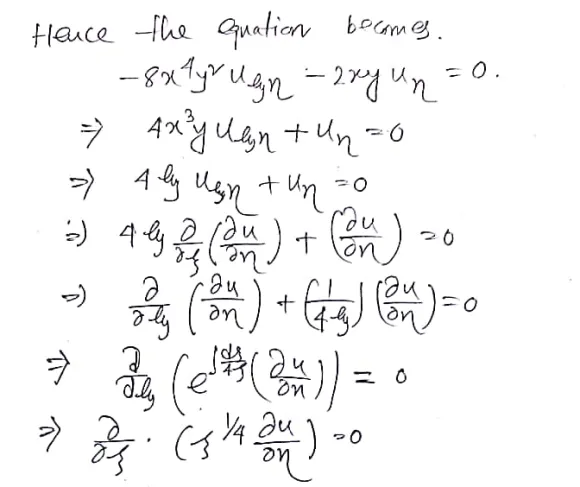 Hence the equation becomes.
-8x⁴y² u_ξη - 2xy u_η = 0.
⇒ 4x³y u_ξη + u_η = 0
⇒ 4ξ u_ξη + u_η = 0
⇒ 4ξ ∂/∂ξ (∂u/∂η) + (∂u/∂η) = 0
⇒ ∂/∂ξ (∂u/∂η) + (1/4ξ) (∂u/∂η) = 0
⇒ ∂/∂ξ (e^{∫dξ/4ξ} (∂u/∂η)) = 0
⇒ ∂/∂ξ · (ξ^{1/4} ∂u/∂η) = 0